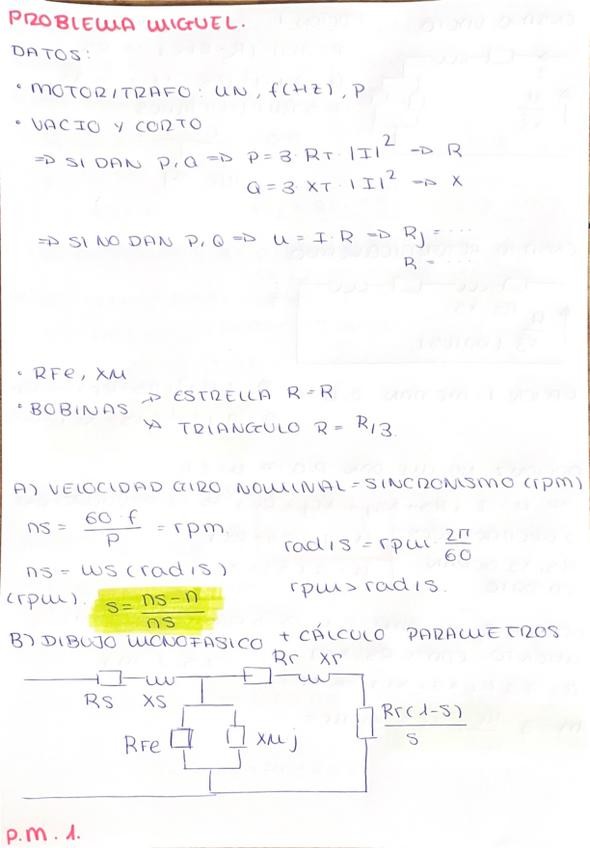 PROBLEMA MIGUEL.
DATOS:
• MOTOR/TRAFO: UN, f(HZ), P
• VACIO Y CORTO
⇒ SI DAN P, Q ⇒ P = 3 · RT · |I|² → R
Q = 3 · XT · |I|² → X
⇒ SI NO DAN P, Q ⇒ U = I · R ⇒ Rj = ...
R = ...
• RFe, XM
• BOBINAS → ESTRELLA R = R
→ TRIANGULO R = R/3.
A) VELOCIDAD GIRO NOMINAL = SINCRONISMO (rpm)
ns = 60 · f / P = rpm.
rad/s = rpm · 2π / 60
ns = ws (rad/s)
(rpm).
rpm > rad/s.
s = ns - n / ns
B) DIBUJO MONOFASICO + CÁLCULO PARAMETROS
Rr Xr
Rs Xs
Rr(1-s) / s
RFe XMj
P.M. 1.